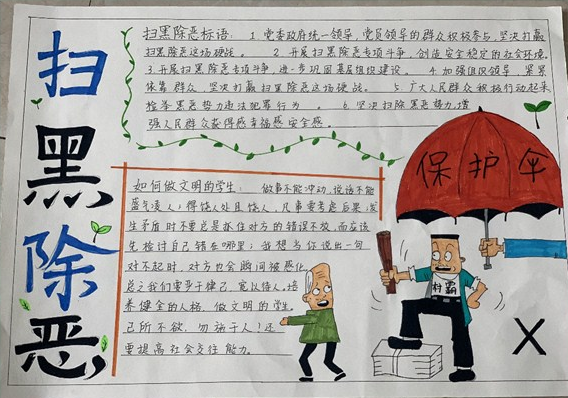 扫黑除恶
扫黑除恶标语：1.党委政府统一领导，党员领导的群众积极参与，坚决打赢
扫黑除恶这场硬战。2.开展扫黑除恶专项斗争，创造安全稳定的社会环境。
3.开展扫黑除恶专项斗争，进一步巩固基层组织建设。4.加强组织领导，紧紧
依靠群众，坚决打赢扫黑除恶这场硬战。5.广大人民群众积极行动起来
检举黑恶势力违法犯罪行为。6.坚决扫除黑恶势力，增
强人民群众获得感幸福感安全感。
如何做文明的学生：做事不能冲动，说话不能
盛气凌人；得饶人处且饶人，凡事要考虑后果；发
生矛盾时不要总是抓住对方的错误不放，而应该
先检讨自己错在哪里；我想当你说出一句
对不起时，对方也会瞬间被感化。
总之我们要严于律己，宽以待人，培
养健全的人格，做文明的学生。
己所不欲，勿施于人！还
要提高社会交往能力。
保护伞
村霸
X